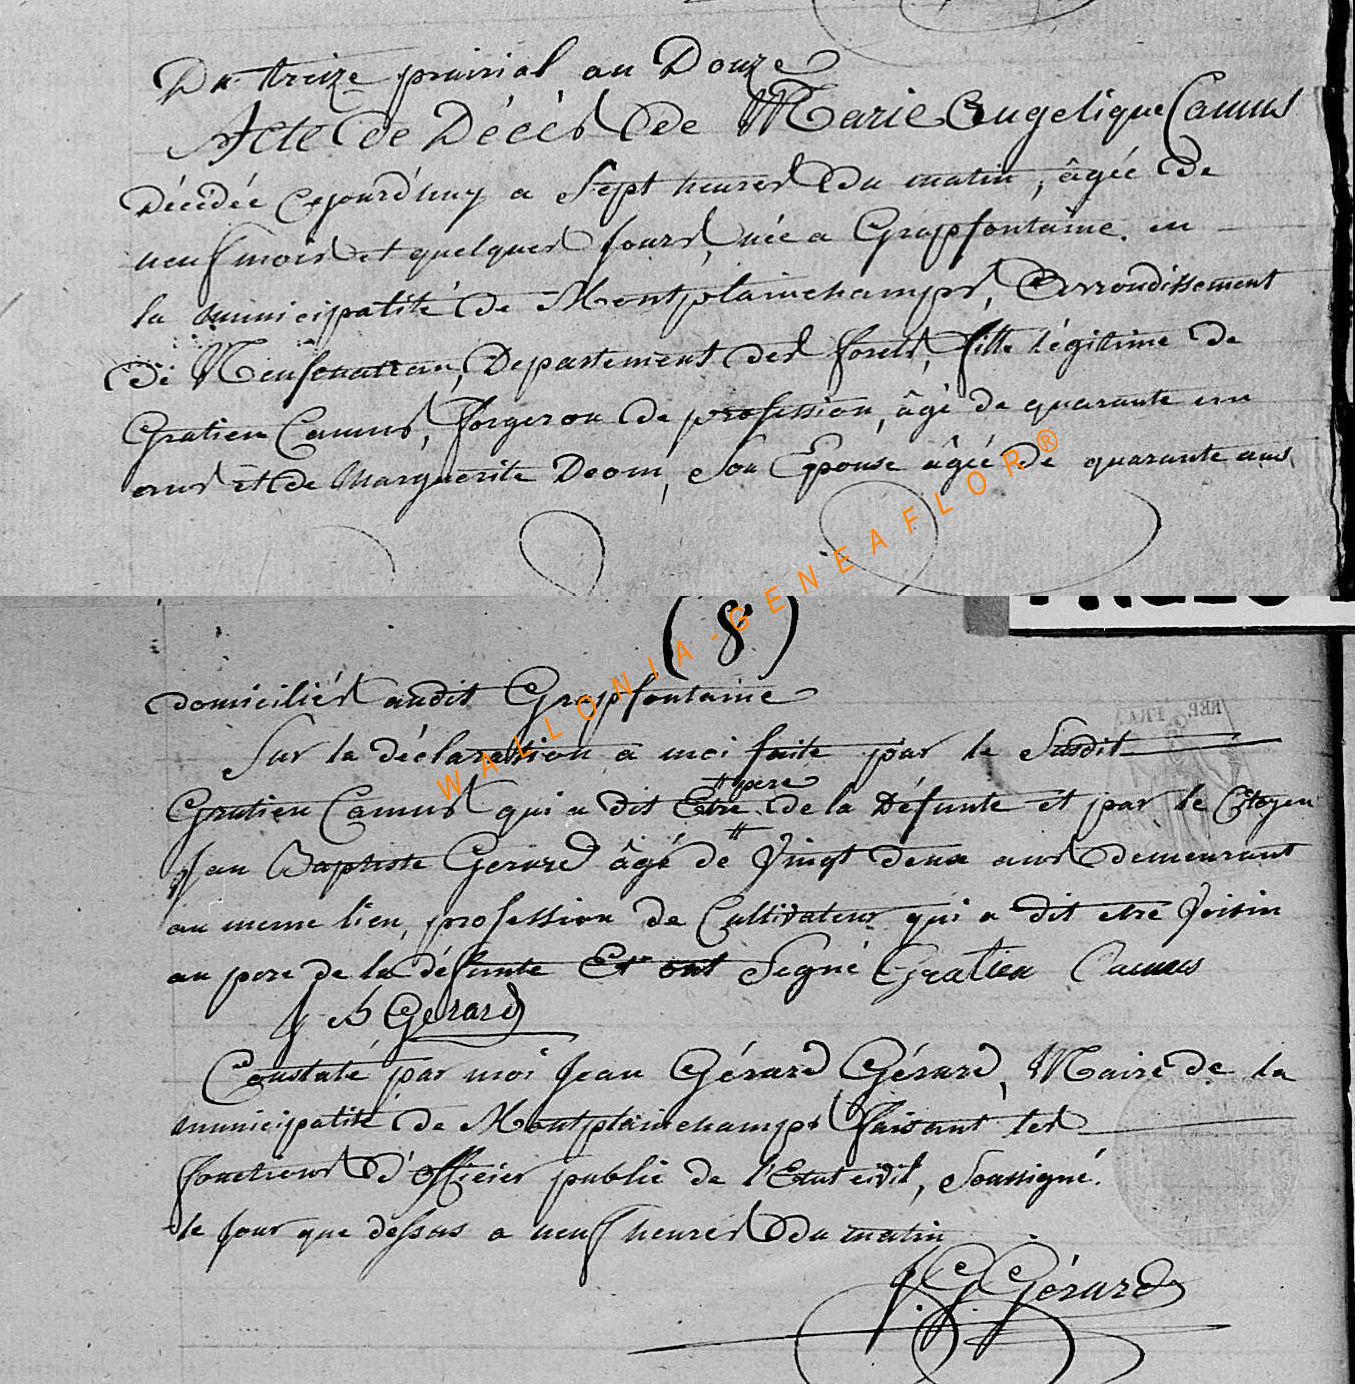 Du treize prairial an Douze
Acte de Décès de Marie Angelique Camus
Décédée cejourd'huy a Sept heures du matin, âgée de
neuf mois et quelques jours, née a Grapfontaine en
la municipalité de Montplainchamps, Arrondissement
de Neufchateau, Departement des forets, fille légitime de
Gratien Camus, forgeron de profession, âgé de quarante un
ans et de Marguerite Deom, son Epouse âgée de quarante ans
(8)
domiciliés audit Grapfontaine
Sur la déclaration à moi faite par le Susdit
# pere
Gratien Camus qui a dit Etre # de la Défunte et par le Citoyen
Jean Baptiste Gerard âgé de Vingt deux ans demeurant
au meme lieu, profession de Cultivateur qui a dit etre Voisin
au pere de la défunte Et ont Segné Gratien Camus
J B Gerard
Constaté par moi Jean Gérard Gérard, Maire de la
municipalité de Montplainchamps faisant les
fonctions d'officier public de l'Etat civil, Soussigné.
le jour que dessus a neuf heures du matin
J. G. Gérard
WALLONIA-GENEAFLOR®